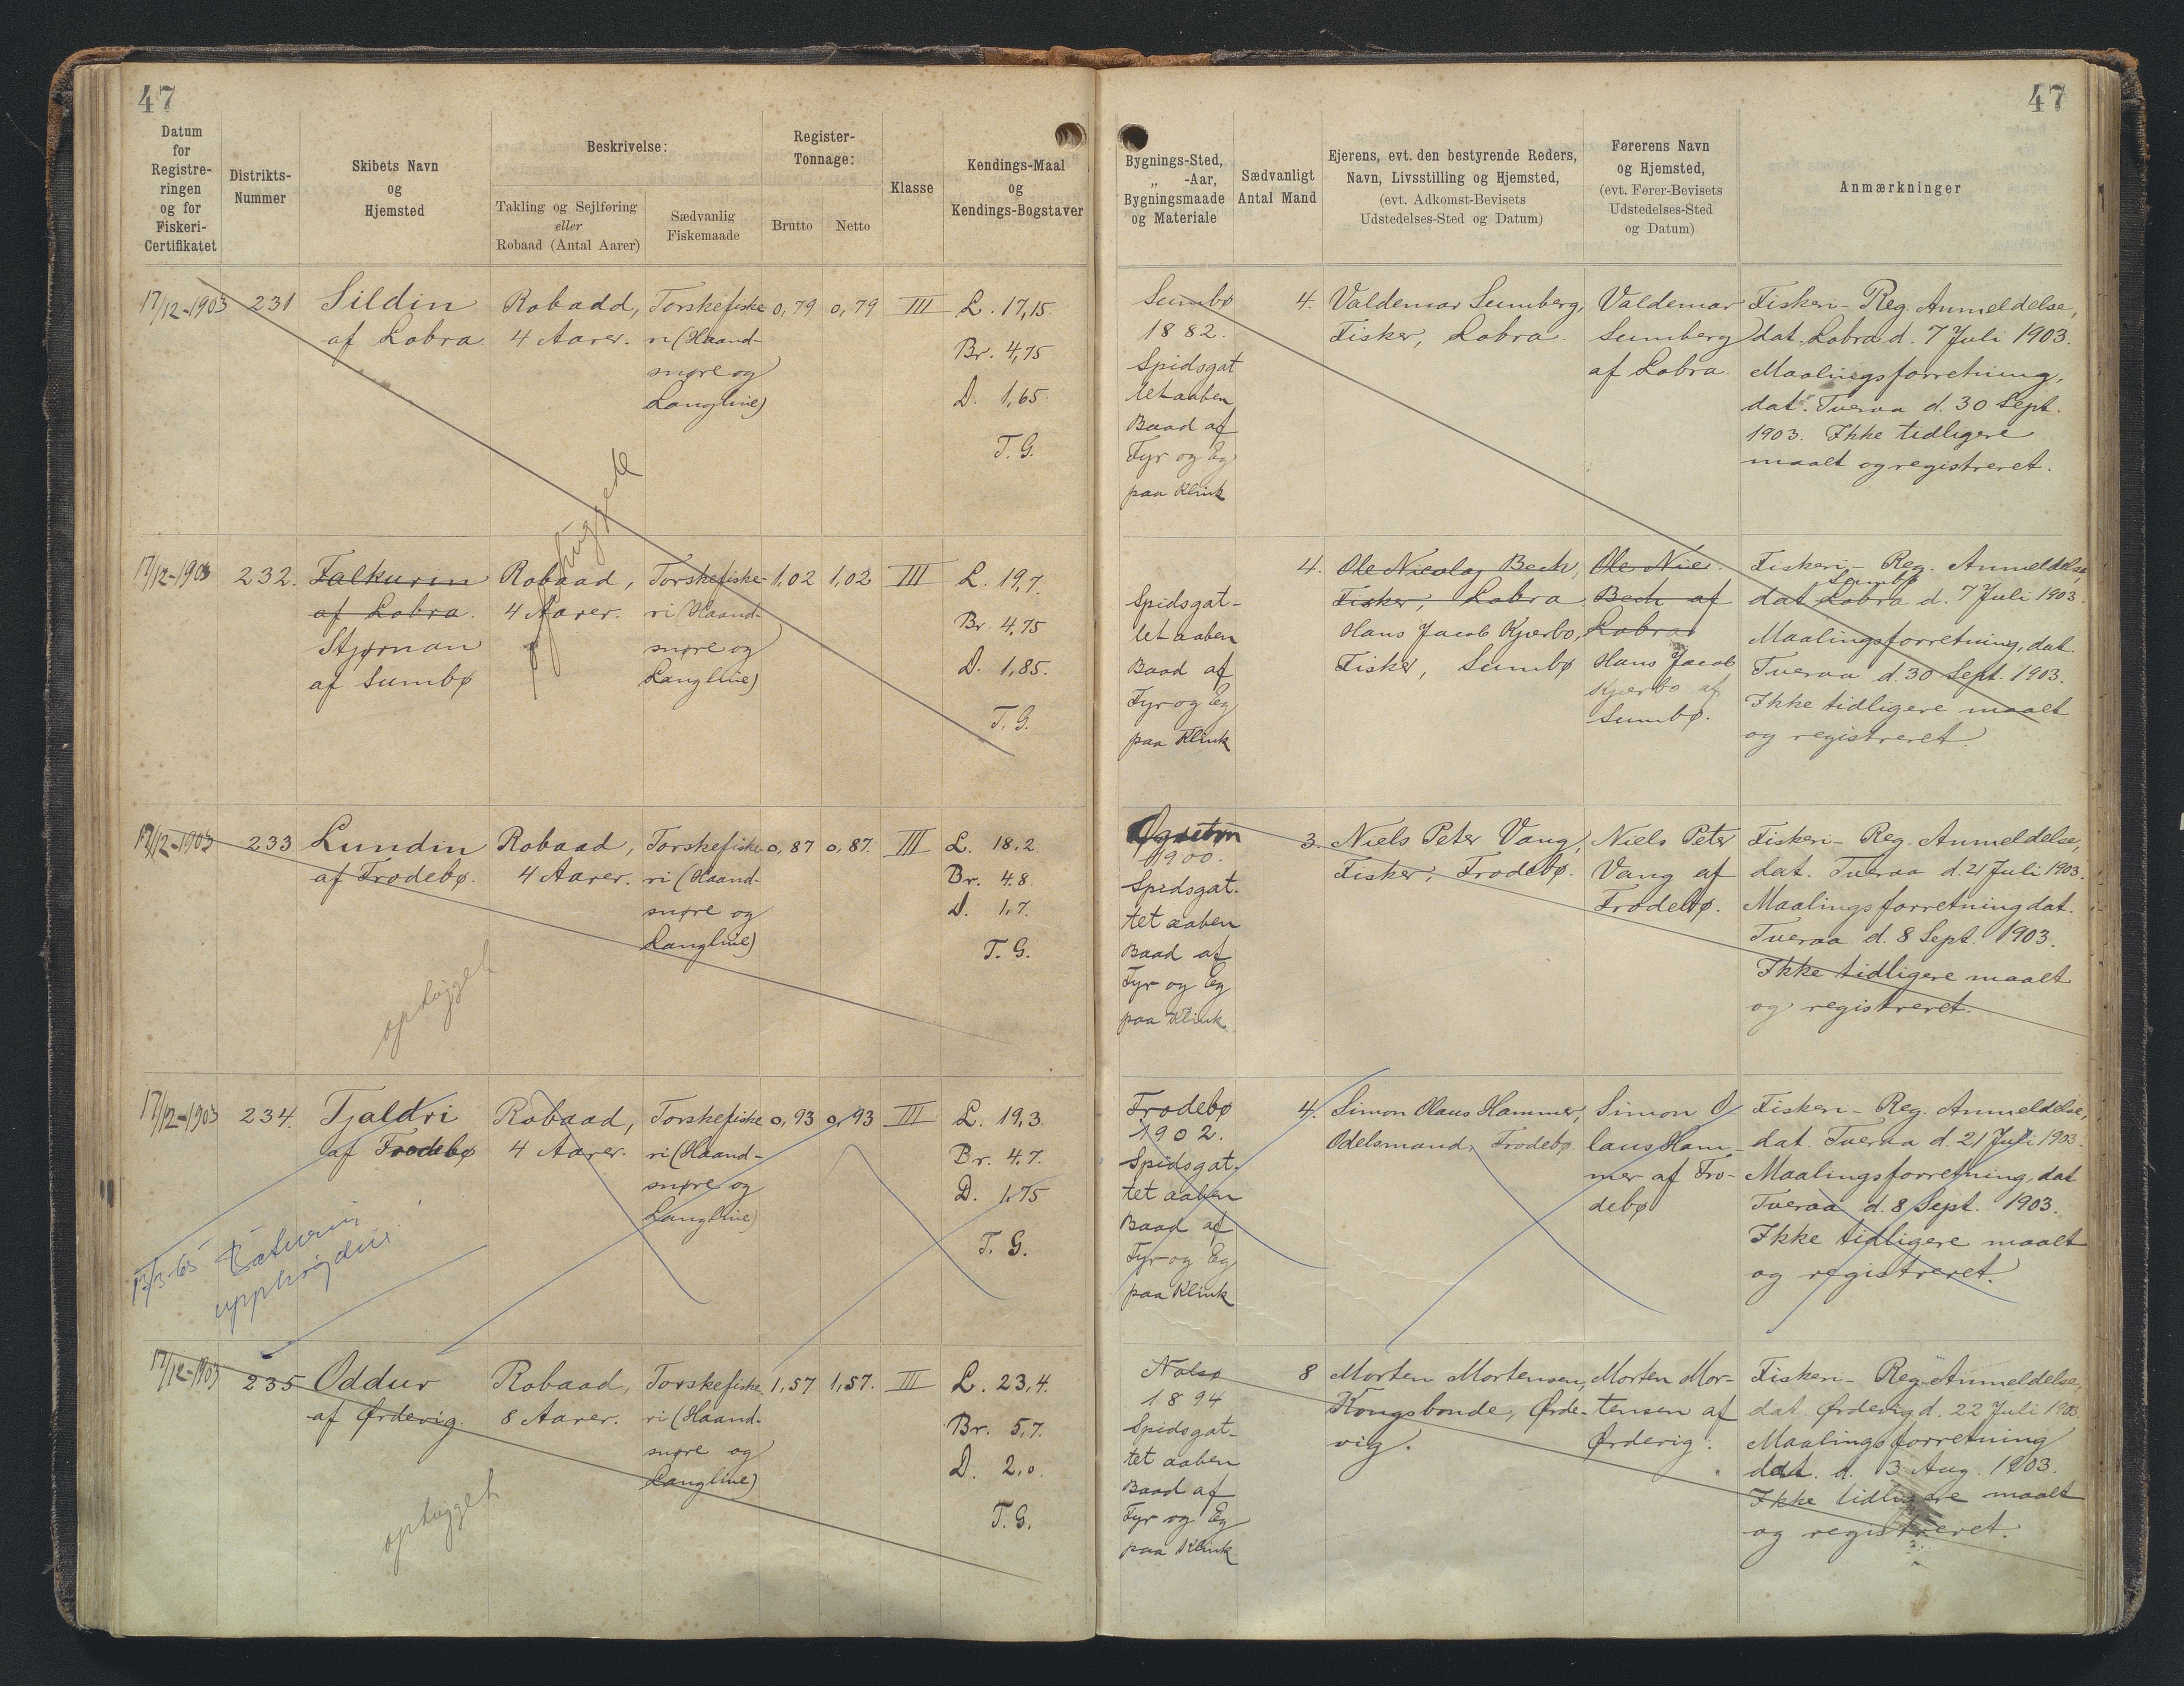 47
47
Datum
for
Registre-
ringen
og for
Fiskeri-
Certifikatet
Distrikts-
Nummer
Skibets Navn
og
Hjemsted
Beskrivelse:
Takling og Sejlføring
eller
Robaad (Antal Aarer)
Sædvanlig
Fiskemaade
Register-
Tonnage:
Brutto
Netto
Klasse
Kendings-Maal
og
Kendings-Bogstaver
Bygnings-Sted,
„ -Aar,
Bygningsmaade
og Materiale
Sædvanligt
Antal Mand
Ejerens, evt. den bestyrende Reders,
Navn, Livsstilling og Hjemsted,
(evt. Adkomst-Bevisets
Udstedelses-Sted og Datum)
Førerens Navn
og Hjemsted,
(evt. Fører-Bevisets
Udstedelses-Sted
og Datum)
Anmærkninger
17/12-1903
231
Sildin
af Lobra
Robadd,
4 Aarer.
Torskefiske
ri (Haand-
snøre og
Langline)
0,79
0,79
III
L. 17,15.
Br. 4,75
D. 1,65.
T. G.
Sumbø
1882.
Spidsgat
tet aaben
Baad af
Fyr og Eg
paa Klink
4.
Valdemar Sumberg,
Fisker, Lobra.
Valdemar
Sumberg
af Lobra.
Fiskeri-Reg. Anmeldelse,
dat. Lobra d. 7 Juli 1903.
Maalingsforretning,
dat. Tveraa d. 30 Sept.
1903. Ikke tidligere
maalt og registreret.
ophuggede
17/12-1903
232.
Falkurin
af Lobra.
Stjørnan
af Sumbø
Robaad,
4 Aarer.
Torskefiske-
ri (Haand-
snøre og
Langline)
1,02
1,02
III
L. 19,7.
Br. 4,75
D. 1,85.
T. G.
Spidsgat-
tet aaben
Baad af
Fyr og Eg
paa Klink
4.
Ole Nicolaj Bech,
Fisker, Lobra.
Hans Jacob Kjærbo,
Fisker, Sumbø
Ole Nic.
Bech af
Lobra
Hans Jacob
Kjærbo af
Sumbø.
Fiskeri-Reg. Anmeldelse,
Sumbø
dat Lobra d. 7 Juli 1903.
Maalingsforretning, dat.
Tveraa d. 30 Sept. 1903.
Ikke tidligere maalt
og registreret.
17/12-1903
233
Lundin
af Frodebø.
Robaad,
4 Aarer.
Torskefiske
ri (Haand-
snøre og
Langline)
0,87
0,87.
III
L. 18,2.
Br. 4.8.
D. 1.7.
T. G.
1900.
Spidsgat-
tet aaben
Baad af
Fyr og Eg
paa Klink
3.
Niels Peter Vang,
Fisker, Frodebø.
Niels Peter
Vang af
Frodebø.
Fiskeri-Reg. Anmeldelse,
dat. Tveraa d. 21 Juli 1903.
Maalingsforretning dat.
Tveraa d. 8 Sept. 1903.
Ikke tidligere maalt
og registreret.
ophugget
17/12-1903
234.
Tjaldri
af Frodebø
Robaad,
4 Aarer.
Torskefiske
ri (Haand-
snøre og
Langline)
0,93
0,93
III
L. 19,3.
Br. 4,7.
D. 1,75
T. G.
Frodebø
1902.
Spidsgat-
tet aaben
Baad af
Fyr og Eg
paa Klink
4.
Simon Olaus Hammer,
Odelsmand, Frodebø.
Simon O
laus Ham-
mer af Fro-
debø
Fiskeri-Reg. Anmeldelse,
dat. Tveraa d. 21 Juli 1903.
Maalingsforretning, dat
Tveraa d. 8 Sept. 1903.
Ikke tidligere maalt
og registreret.
Báturin
upphøgdur
17/12-1903
235
Oddur
af Ørdevig.
Robaad,
8 Aarer.
Torskefiske
ri (Haand-
snøre og
Langline)
1,57
1,57.
III
L. 23,4.
Br. 5,7.
D. 2,0.
T. G.
Nolsø
1894
Spidsgat-
tet aaben
Baad af
Fyr og Eg
paa Klink
8
Morten Mortensen,
Kongsbonde, Ørde-
vig.
Morten Mor-
tensen af
Ørdevig.
Fiskeri-Reg. Anmeldelse,
dat Ørdevig d. 22 Juli 1903.
Maalingsforretning
dat. d. 3 Aug. 1903.
Ikke tidligere maalt
og registreret.
ophugget